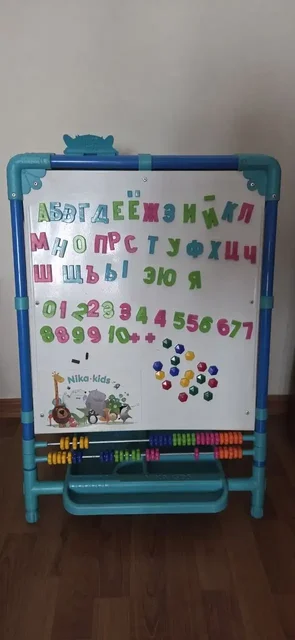 АБВГДЕЁЖЗИЙКЛ
МНОПРСТУФХЦЧ
ШЩЪЫ ЭЮЯ
012223344556677
889910++
Nika-kids